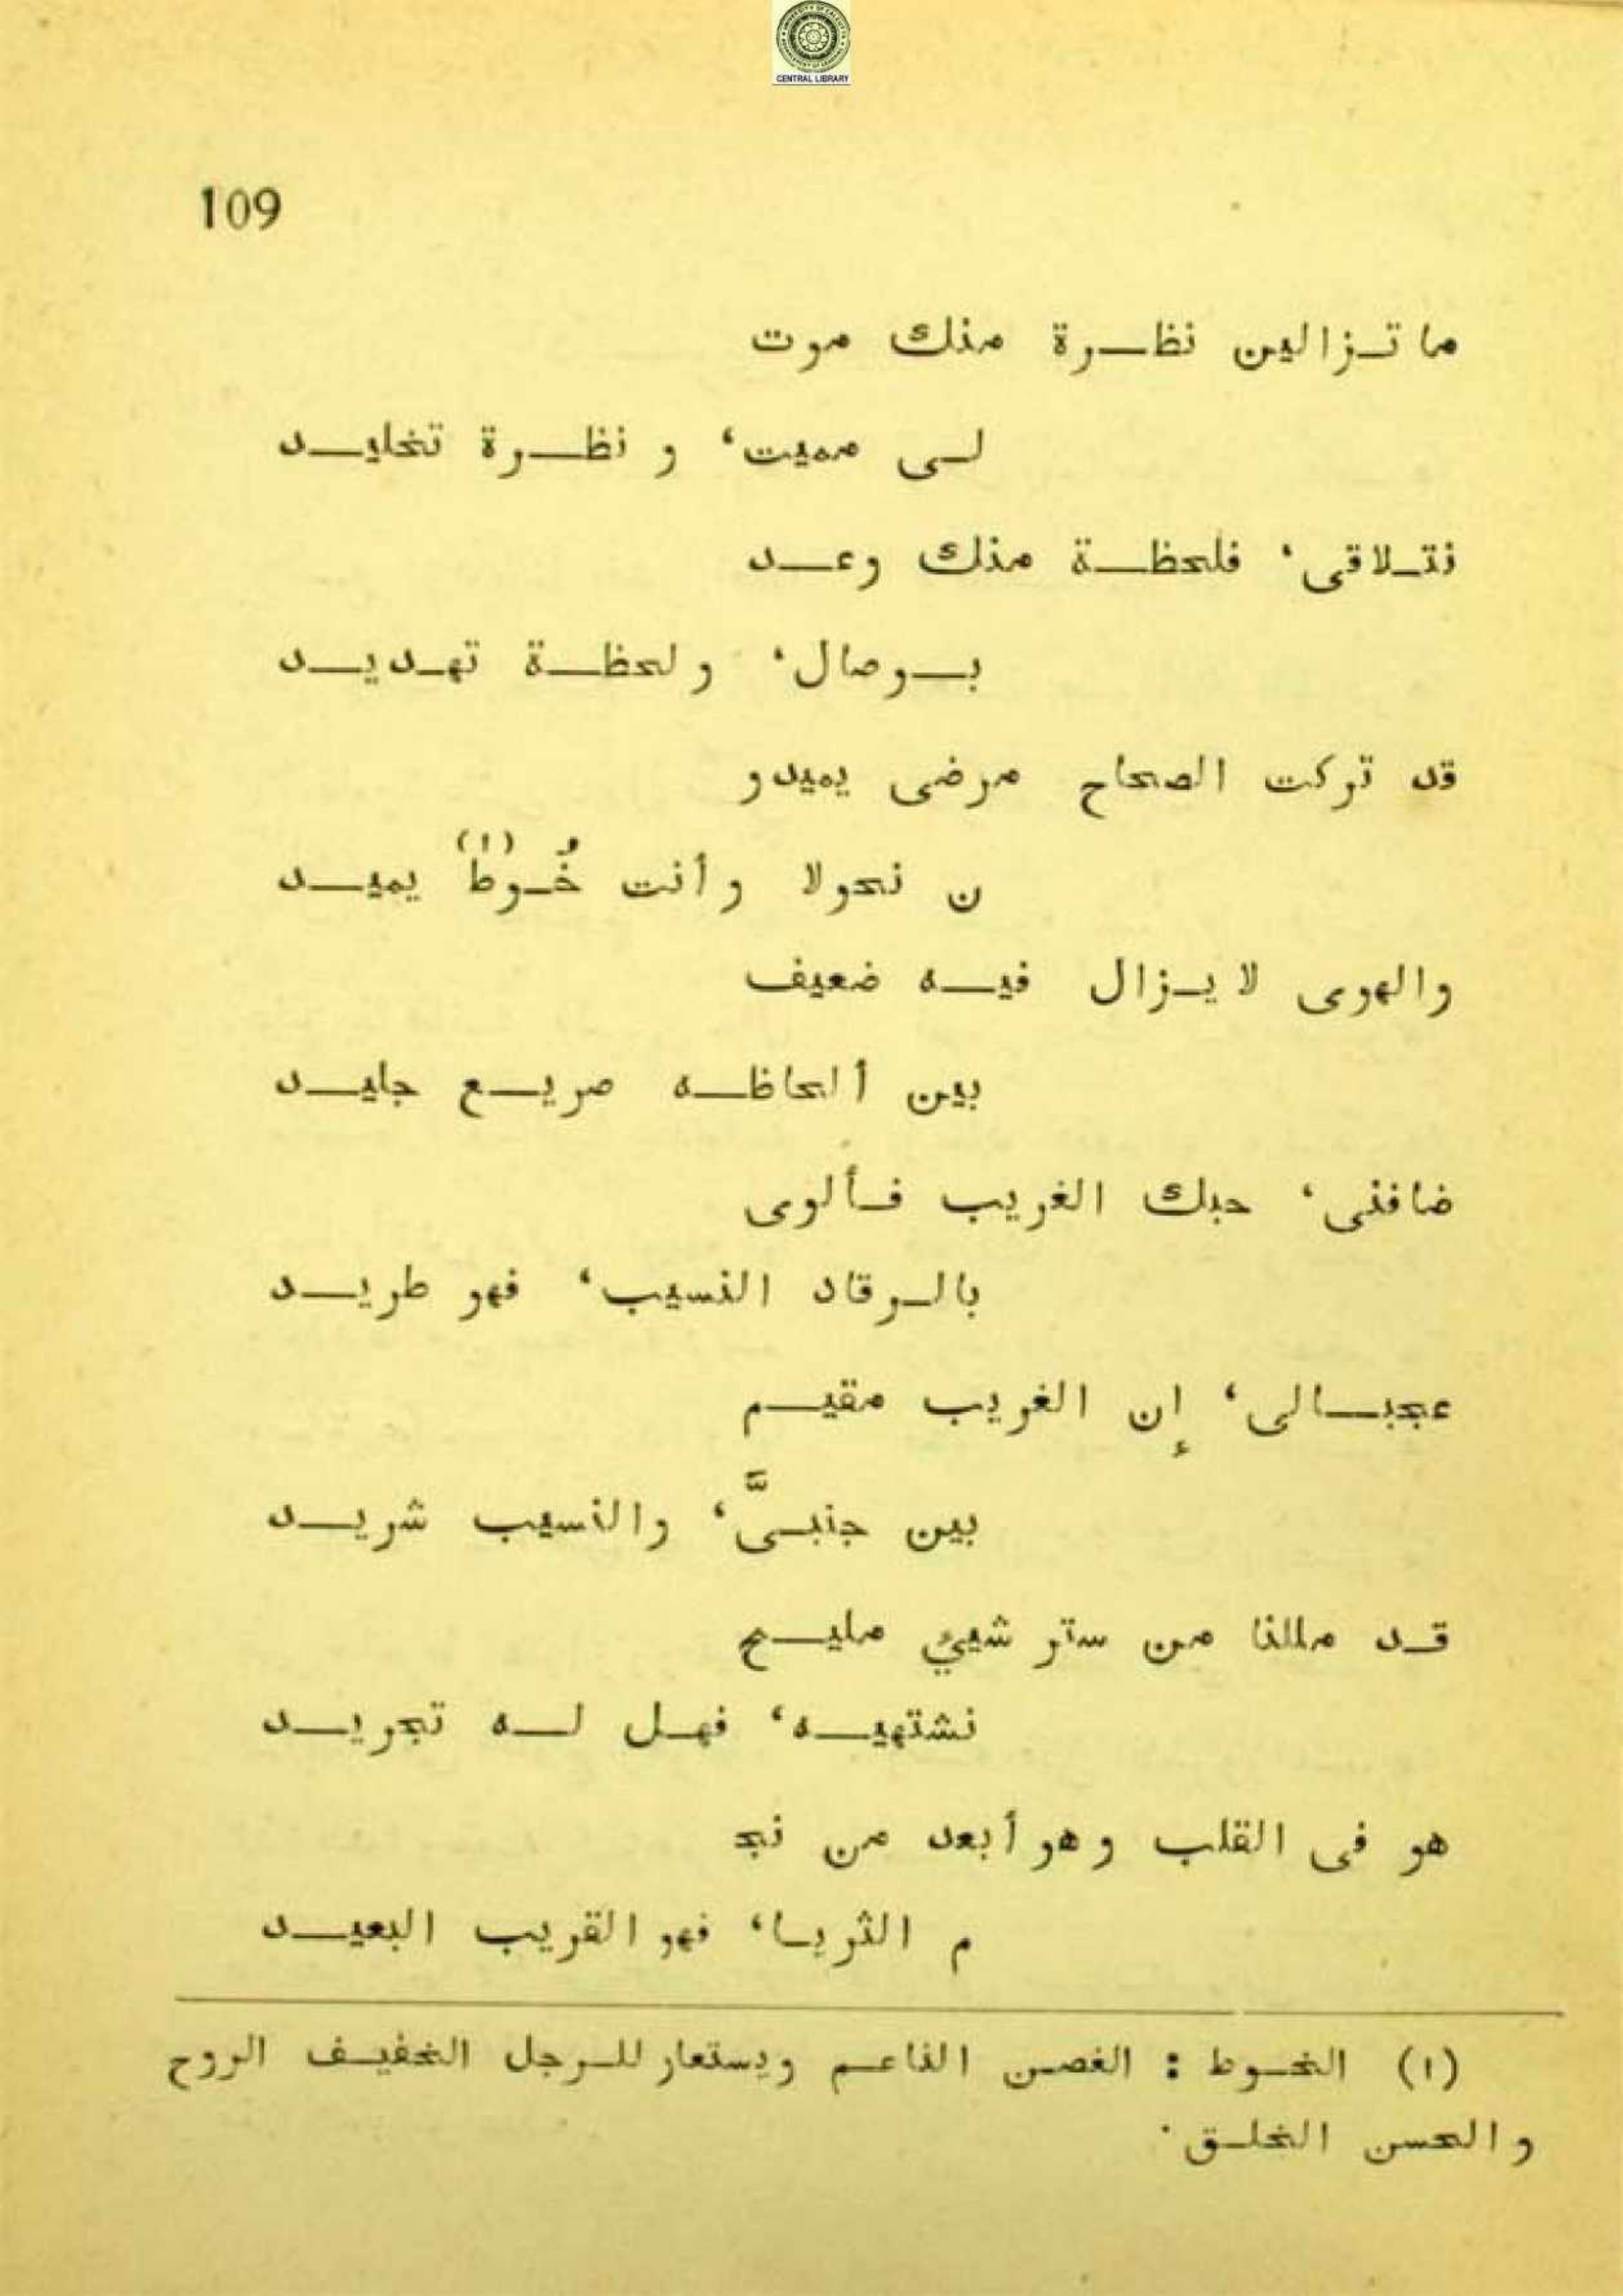 CENTRAL LIBRARY
109
ما تزالين نظرة منك موت
لى مميت، و نظرة تخليد
نتلاقى، فلحظة منك وعد
بوصال، و لحظة تهديد
قد تركت الصحاح مرضى يميدو
ن نحولا و أنت خُوطٌ (١) يميد
والهوى لا يزال فيه ضعيف
بين ألحاظه صريع جليد
ضافنى، حبك الغريب فألوى
بالرقاد النسيب، فهو طريد
عجبالى، إن الغريب مقيم
بين جنبىَّ، والنسيب شريد
قد مللنا من ستر شيئ مليح
نشتهيه، فهل له تجريد
هو فى القلب و هو أبعد من نج
م الثريا، فهو القريب البعيد
(١) الخوط : الغصن الناعم ويستعار للرجل الخفيف الروح
و الحسن الخلق.